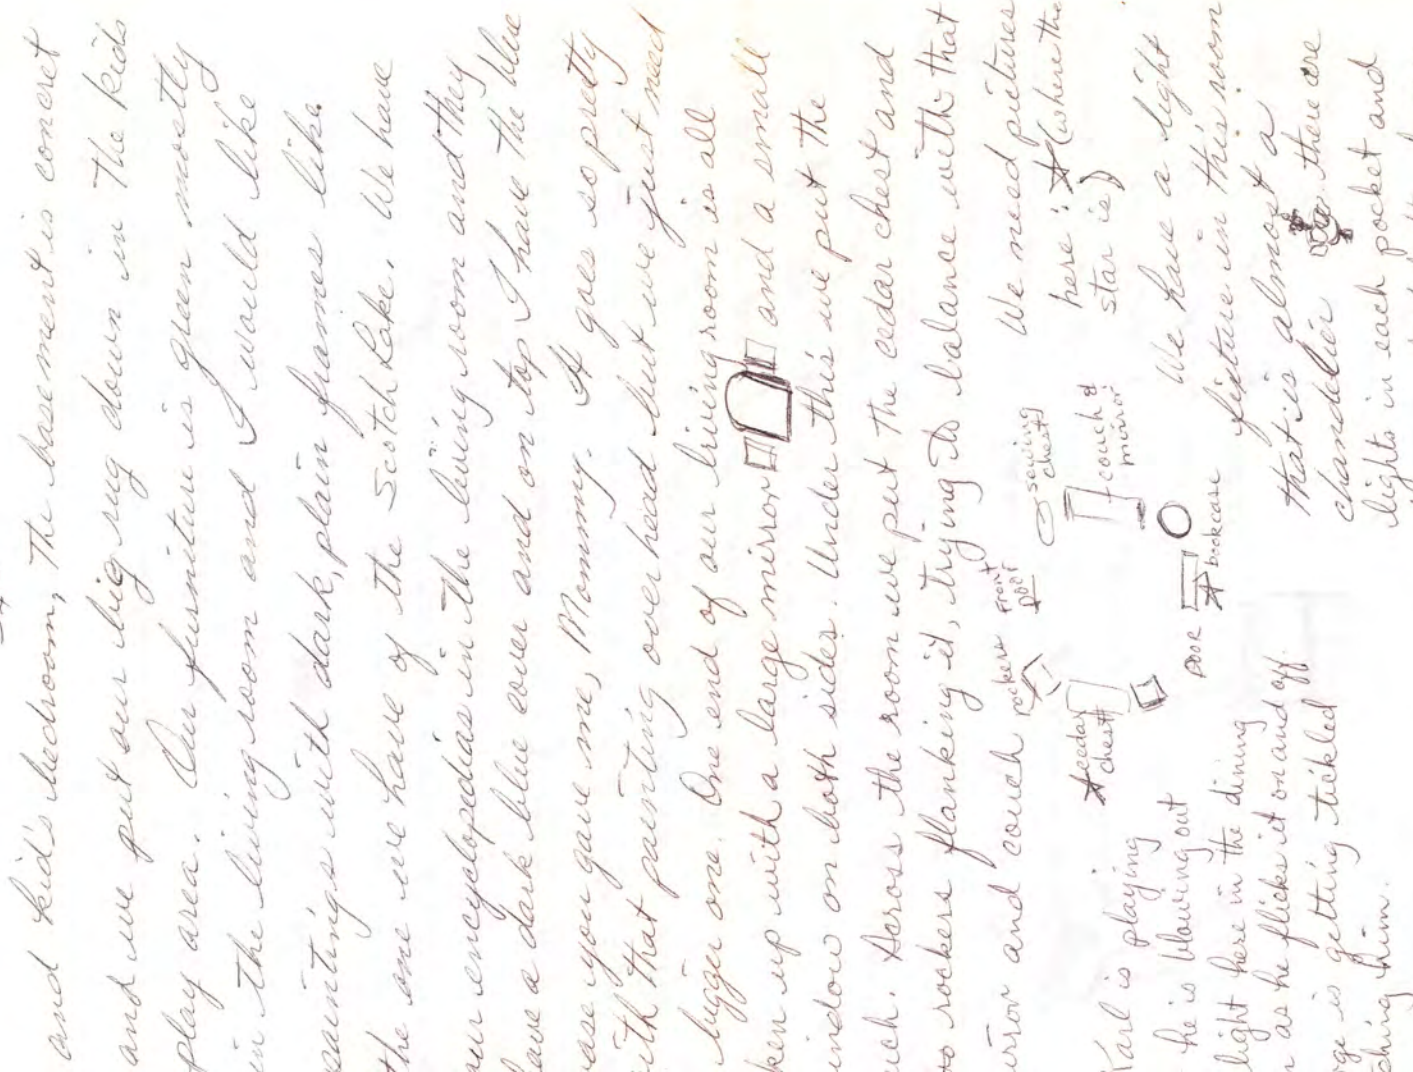 and kid's bedroom, The basement is concret
and we put our big rug down in the kids
play area. Our furniture is green mostly
in the living room and I would like
paintings with dark, plain frames like
the one we have of the Scotch Lake. We have
our encyclopedias in the living room and they
have a dark blue cover and on top I have the blue
ase you gave me, Mommy. It goes so pretty
with that painting over head but we just need
bigger one. One end of our living room is all
ken up with a large mirror and a small
indow on both sides. Under this we put the
uch. Across the room we put the cedar chest and
to rockers flanking it, trying to balance with that
irror and couch
rockers
Front
Door
sewing
chest
couch &
mirror
bookcase
DOOR
cedar
chest
We need pictures
here: (where the
star is)
We have a light
fixture in this room
that is almost a
chandelier there are
lights in each pocket and
Karl is playing
he is blowing out
light here in the dining
as he flicks it on and off.
rge is getting tickled
ching him.